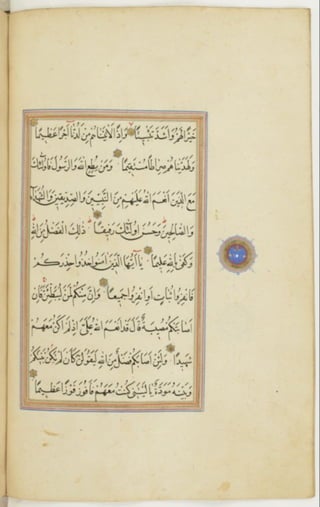 خَيْرًا لَهُمْ وَأَشَدَّ تَثْبِيتًا وَإِذًا لَآتَيْنَاهُمْ مِنْ لَدُنَّا أَجْرًا عَظِيمًا
وَلَهَدَيْنَاهُمْ صِرَاطًا مُسْتَقِيمًا وَمَنْ يُطِعِ اللَّهَ وَالرَّسُولَ فَأُولَئِكَ
مَعَ الَّذِينَ أَنْعَمَ اللَّهُ عَلَيْهِمْ مِنَ النَّبِيِّينَ وَالصِّدِّيقِينَ وَالشُّهَدَاءِ
وَالصَّالِحِينَ وَحَسُنَ أُولَئِكَ رَفِيقًا ذَلِكَ الْفَضْلُ مِنَ اللَّهِ
وَكَفَى بِاللَّهِ عَلِيمًا يَا أَيُّهَا الَّذِينَ آمَنُوا خُذُوا حِذْرَكُمْ
فَانْفِرُوا ثُبَاتٍ أَوِ انْفِرُوا جَمِيعًا وَإِنَّ مِنْكُمْ لَمَنْ لَيُبَطِّئَنَّ فَإِنْ
أَصَابَتْكُمْ مُصِيبَةٌ قَالَ قَدْ أَنْعَمَ اللَّهُ عَلَيَّ إِذْ لَمْ أَكُنْ مَعَهُمْ
شَهِيدًا وَلَئِنْ أَصَابَكُمْ فَضْلٌ مِنَ اللَّهِ لَيَقُولَنَّ كَأَنْ لَمْ تَكُنْ بَيْنَكُمْ
وَبَيْنَهُ مَوَدَّةٌ يَا لَيْتَنِي كُنْتُ مَعَهُمْ فَأَفُوزَ فَوْزًا عَظِيمًا